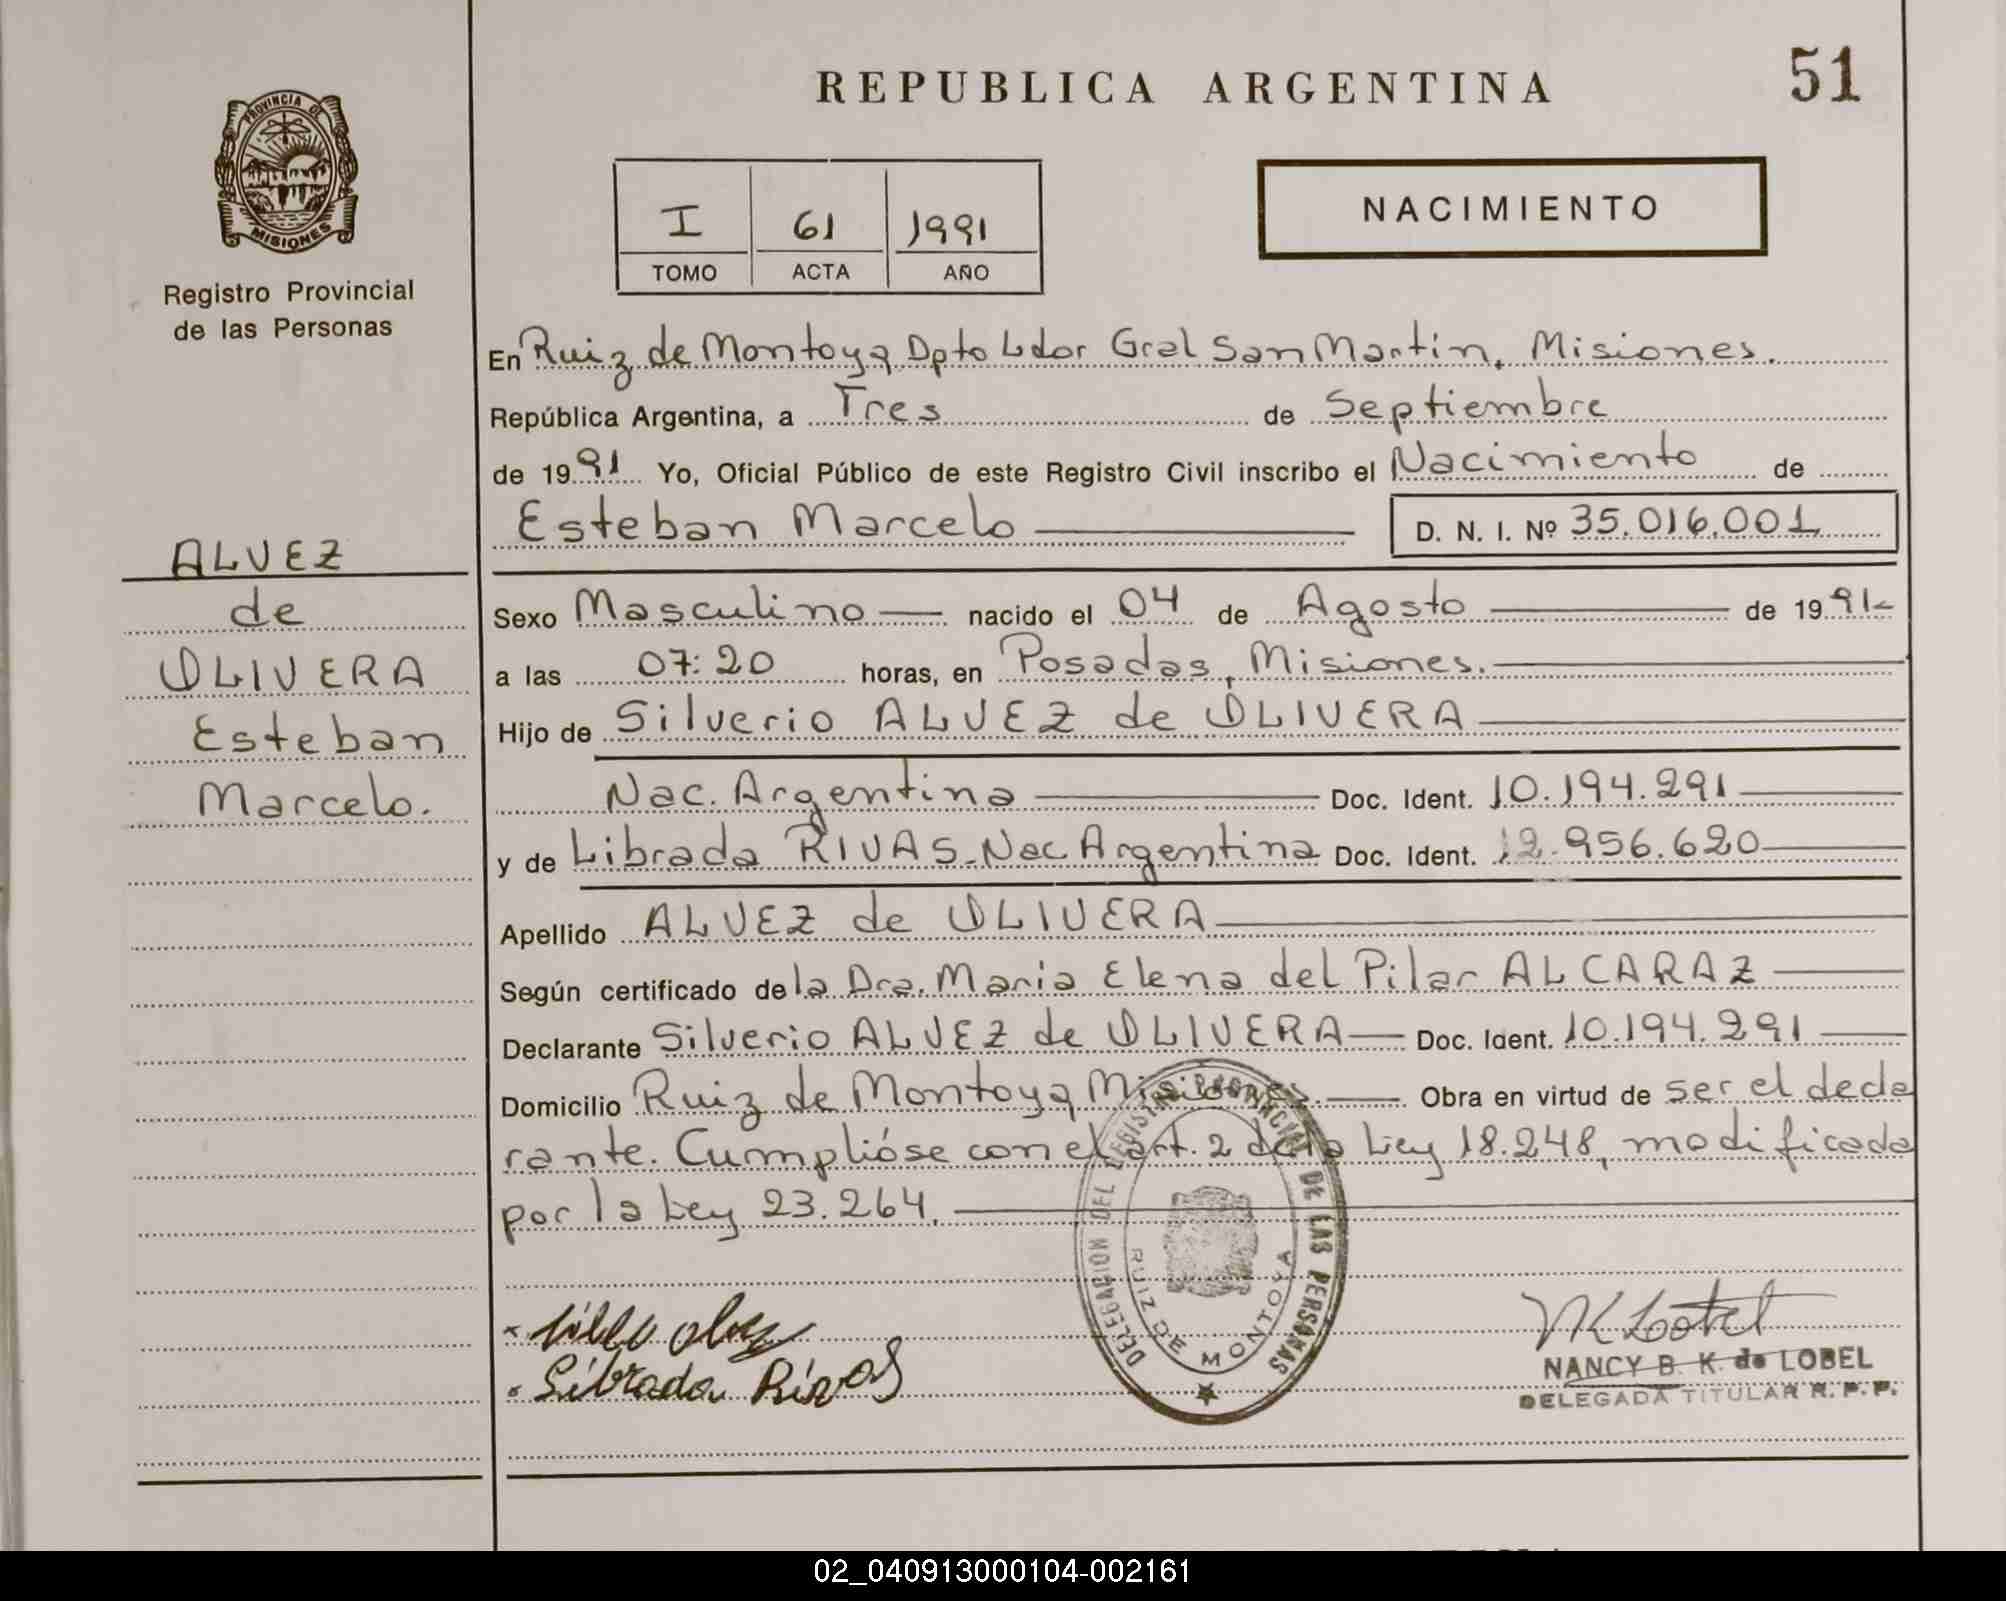 REPUBLICA ARGENTINA
51
PROVINCIA DE
MISIONES
Registro Provincial
de las Personas
I 61 1991
TOMO ACTA AÑO
NACIMIENTO
En Ruiz de Montoya Dpto Ldor Gral San Martin, Misiones.
República Argentina, a Tres de Septiembre
de 1991 Yo, Oficial Público de este Registro Civil inscribo el Nacimiento de
Esteban Marcelo D. N. I. Nº 35.016.001
ALVEZ
de
OLIVERA
Esteban
Marcelo.
Sexo Masculino nacido el 04 de Agosto de 1991
a las 07:20 horas, en Posadas, Misiones.
Hijo de Silverio ALVEZ de OLIVERA
Nac. Argentina Doc. Ident. 10.194.291
y de Librada RIVAS-Nac Argentina Doc. Ident. 12.956.620
Apellido ALVEZ de OLIVERA
Según certificado de la Dra. Maria Elena del Pilar ALCARAZ
Declarante Silverio ALVEZ de OLIVERA Doc. Ident. 10.194.291
Domicilio Ruiz de Montoya Misiones. Obra en virtud de ser el decla
rante. Cumplióse con el art. 2 de la Ley 18.248, modificada
por la Ley 23.264.
DELEGACION DEL REGISTRO PROVINCIAL DE LAS PERSONAS
RUIZ DE MONTOYA
Librada Rivas
NANCY B. K. de LOBEL
DELEGADA TITULAR R. P. P.
02_040913000104-002161